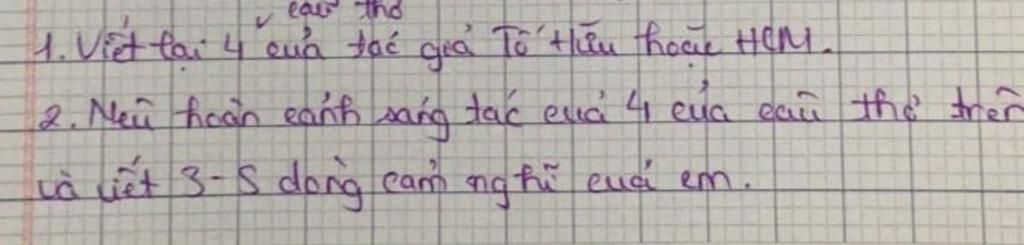 câu thơ
1. Viết lại 4 của tác giả Tố Hữu hoặc HCM.
2. Nêu hoàn cảnh sáng tác của 4 của câu thơ trên
và viết 3-5 dòng cảm nghĩ của em.